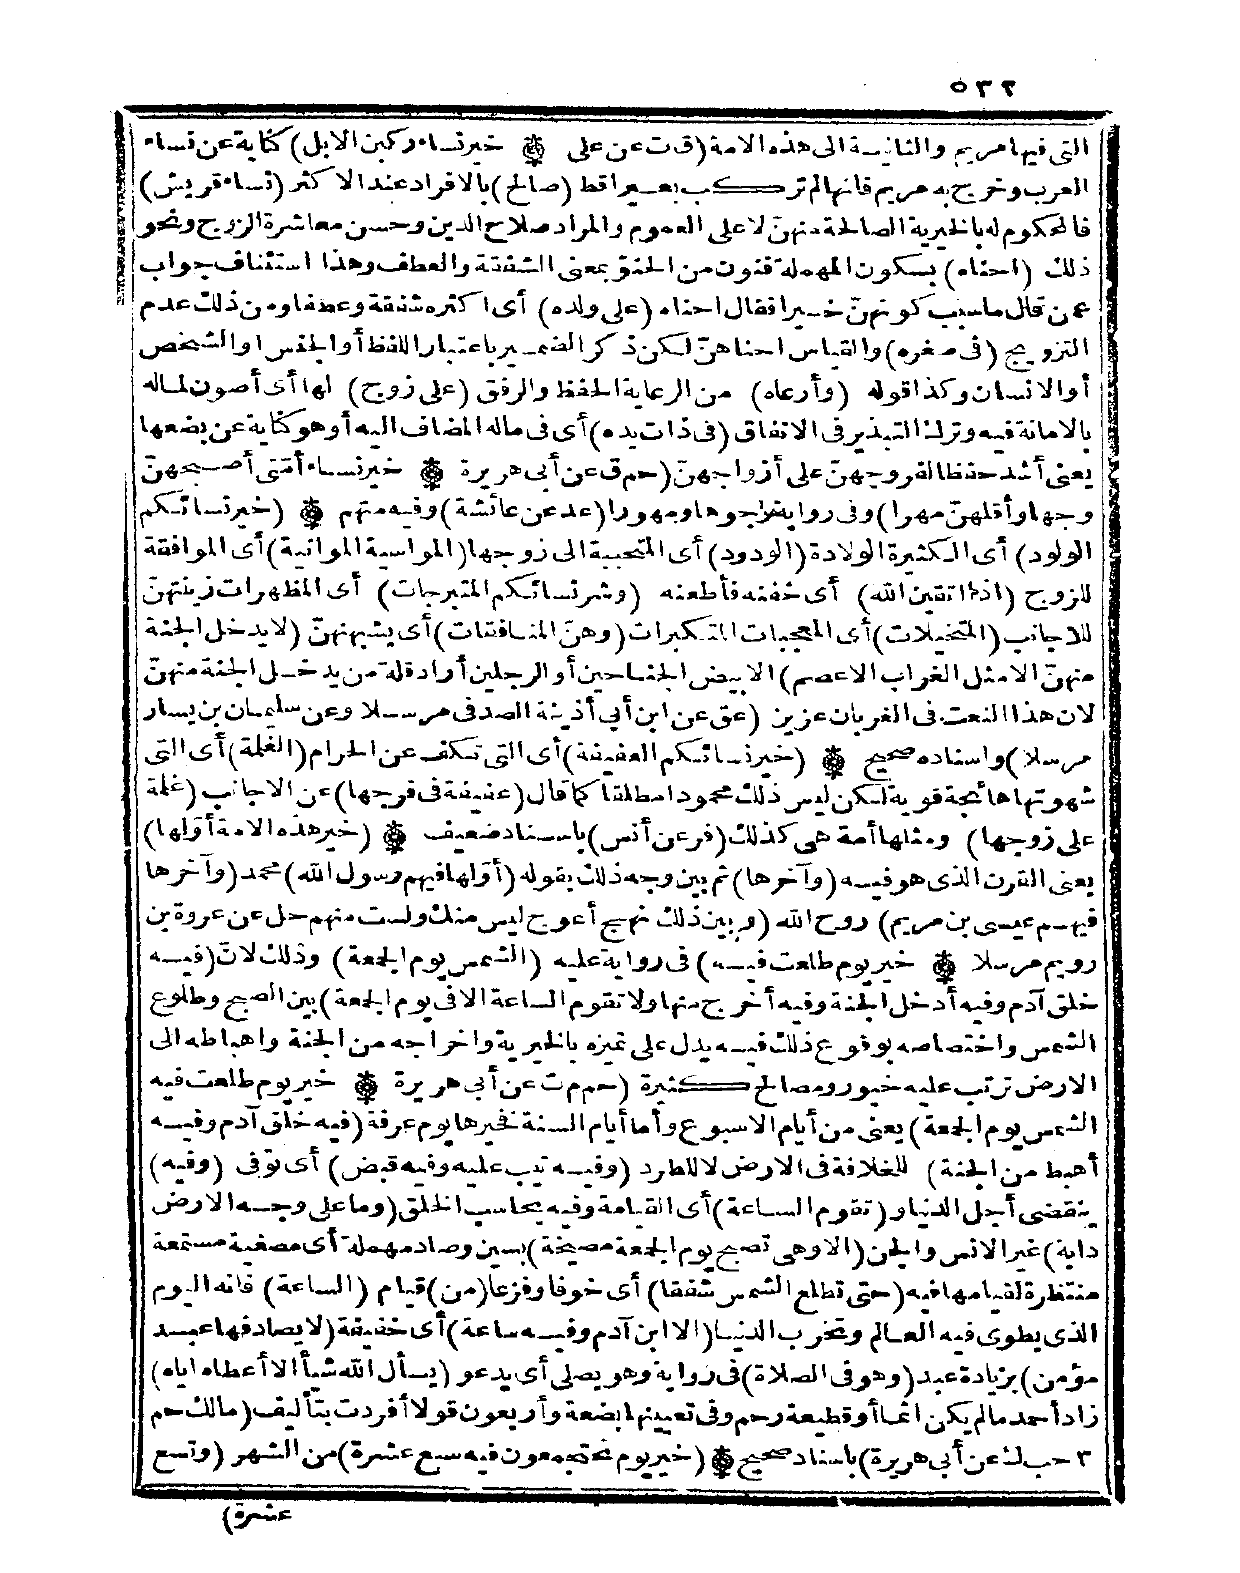 ٥٣٢
التى فيها مريم والثانية الى هذه الامة (ق ت عن على ۞ خير نساء ركبن الابل) كناية عن نساء
العرب وخرج به مريم فانها لم تركب بعيرا قط (صالح) بالافراد عند الاكثر (نساء قريش)
فالمحكوم له بالخيرية الصالحة منهنّ لا على العموم والمراد صلاح الدين وحسن معاشرة الزوج ونحو
ذلك (احناه) بسكون المهملة فنون من الحنوّ بمعنى الشفقة والعطف وهذا استئناف جواب
عمن قال ما سبب كونهنّ خيرا فقال احناه (على ولده) أى اكثره شفقة وعطفا ومن ذلك عدم
التزويج (فى صغره) والقياس احناهنّ لكن ذكر الضمير باعتبار اللفظ أو الجنس او الشخص
أو الانسان وكذا قوله (وأرعاه) من الرعاية الحفظ والرفق (على زوج) لها أى أصون لماله
بالامانة فيه وترك التبذير فى الانفاق (فى ذات يده) أى فى ماله المضاف اليه أو هو كناية عن بضعها
يعنى أشد حفظا لفروجهنّ على أزواجهنّ (حم ق عن أبى هريرة ۞ خير نساء أمّتى أصبحهنّ
وجها وأقلهنّ مهرا) وفى رواية وجوها ومهورا (عد عن عائشة) وفيه متهم ۞ (خير نسائكم
الولود) أى الكثيرة الولادة (الودود) أى المتحببة الى زوجها (المواسية المواتية) أى الموافقة
للزوج (اذا اتقين الله) أى خفنه فأطعنه (وشر نسائكم المتبرجات) أى المظهرات زينتهنّ
للاجانب (المتخيلات) أى المعجبات المتكبرات (وهنّ المنافقات) أى يشبهنهنّ (لا يدخل الجنة
منهنّ الا مثل الغراب الاعصم) الابيض الجناحين أو الرجلين أراد قلة من يدخل الجنة منهنّ
لان هذا النعت فى الغربان عزيز (هق عن ابن أبى أذينة الصدفى مرسلا وعن سليمان بن يسار
مرسلا) واسناده صحيح ۞ (خير نسائكم العفيفة) أى التى تكف عن الحرام (الغلمة) أى التى
شهوتها هائجة قوية لكن ليس ذلك محمودا مطلقا كما قال (عفيفة فى فرجها) عن الاجانب (غلمة
على زوجها) ومثلها أمة هى كذلك (فر عن أنس) باسناد ضعيف ۞ (خير هذه الامة أوّلها)
يعنى القرن الذى هو فيه (وآخرها) ثم بين وجه ذلك بقوله (أوّلها فيهم رسول الله) محمد (وآخرها
فيهم عيسى بن مريم) روح الله (وبين ذلك نهج أعوج ليس منك ولست منهم حل عن عروة بن
رويم مرسلا ۞ خير يوم طلعت فيه) فى رواية عليه (الشمس يوم الجمعة) وذلك لانّ (فيه
خلق آدم وفيه أدخل الجنة وفيه أخرج منها ولا تقوم الساعة الا فى يوم الجمعة) بين الصبح وطلوع
الشمس واختصاصه بوقوع ذلك فيه يدل على تميزه بالخيرية واخراجه من الجنة واهباطه الى
الارض ترتب عليه خيور ومصالح كثيرة (حم م ت عن أبى هريرة ۞ خير يوم طلعت فيه
الشمس يوم الجمعة) يعنى من أيام الاسبوع وأما أيام السنة فخيرها يوم عرفة (فيه خلق آدم وفيه
أهبط من الجنة) للخلافة فى الارض لا للطرد (وفيه تيب عليه وفيه قبض) أى توفى (وفيه)
ينقضى أجل الدنيا و(تقوم الساعة) أى القيامة وفيه يحاسب الخلق (وما على وجه الارض
دابة) غير الانس والجن (الا وهى تصبح يوم الجمعة مصيخة) بسين وصاد مهملة أى مصغية مستمعة
منتظرة لقيامها فيه (حتى تطلع الشمس شفقا) أى خوفا وفزعا (من) قيام (الساعة) فانه اليوم
الذى يطوى فيه العالم وتخرب الدنيا (الا ابن آدم وفيه ساعة) أى خفيفة (لا يصادفها عبد
مؤمن) بزيادة عبد (وهو فى الصلاة) فى رواية وهو يصلى أى يدعو (يسأل الله شيأ الا أعطاه اياه)
زاد أحمد ما لم يكن اثما أو قطيعة رحم وفى تعيينها بضعة وأربعون قولا أفردت بتأليف (مالك حم
٣ حب ك عن أبى هريرة) باسناد صحيح ۞ (خير يوم تحتجمعون فيه سبع عشرة) من الشهر (وتسع
عشرة)